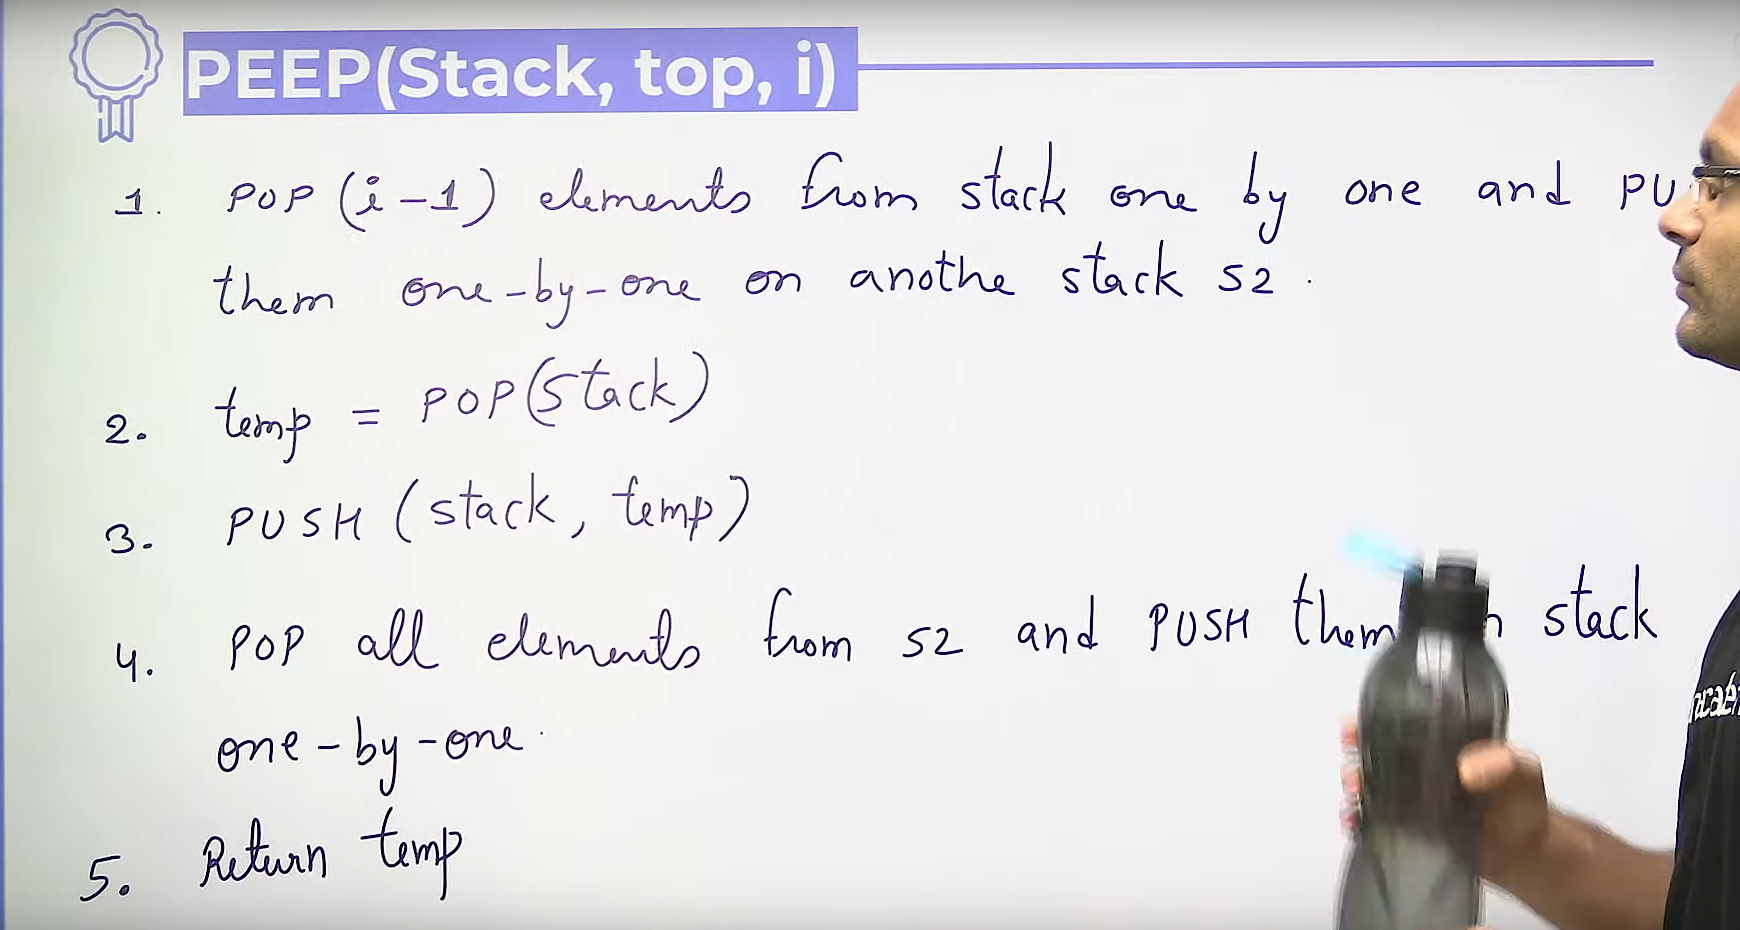 PEEP(Stack, top, i)
1. POP (i-1) elements from stack one by one and
them one-by-one on anothe stack S2.
2. temp = POP(Stack)
3. PUSH (stack, temp)
4. POP all elements from S2 and PUSH them stack
one-by-one.
5. Return temp